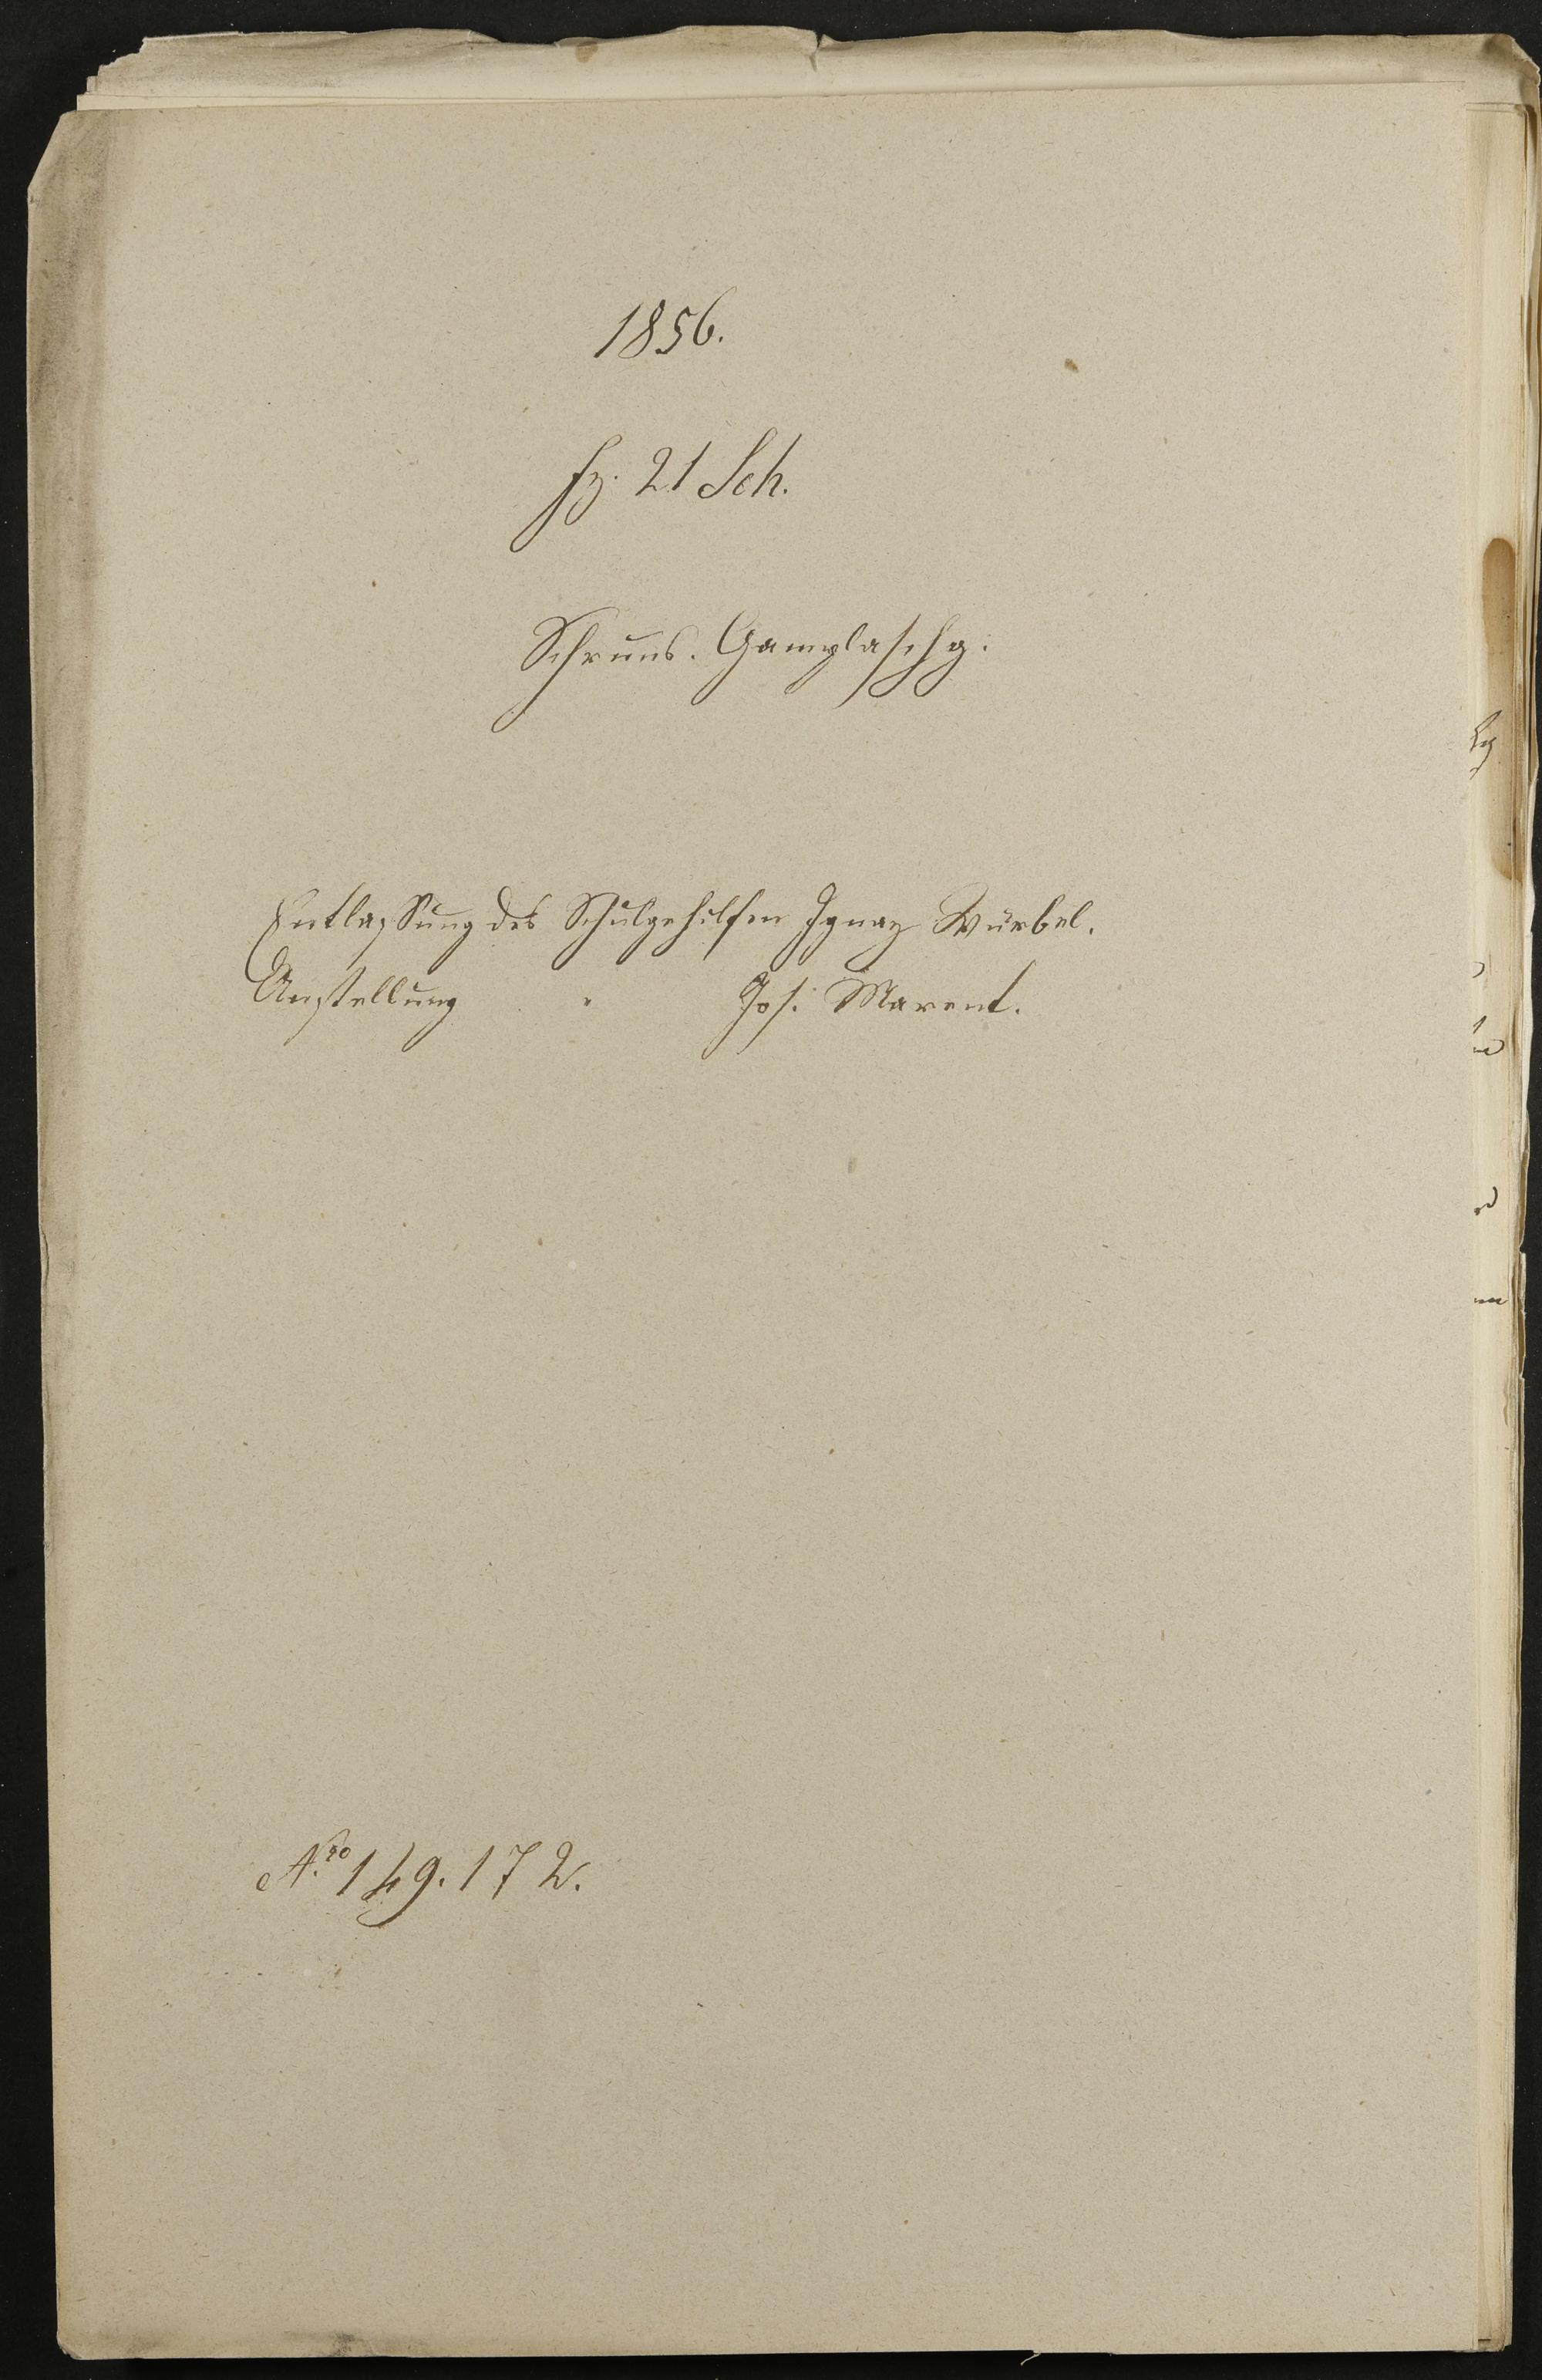 1856.
fz. 21 Sch.
Schruns. Gamplaschg.
Entlassung des Schulgehilfen Ignaz Würbel.
Anstellung " Jos. Marent.
Nro 149. 172.